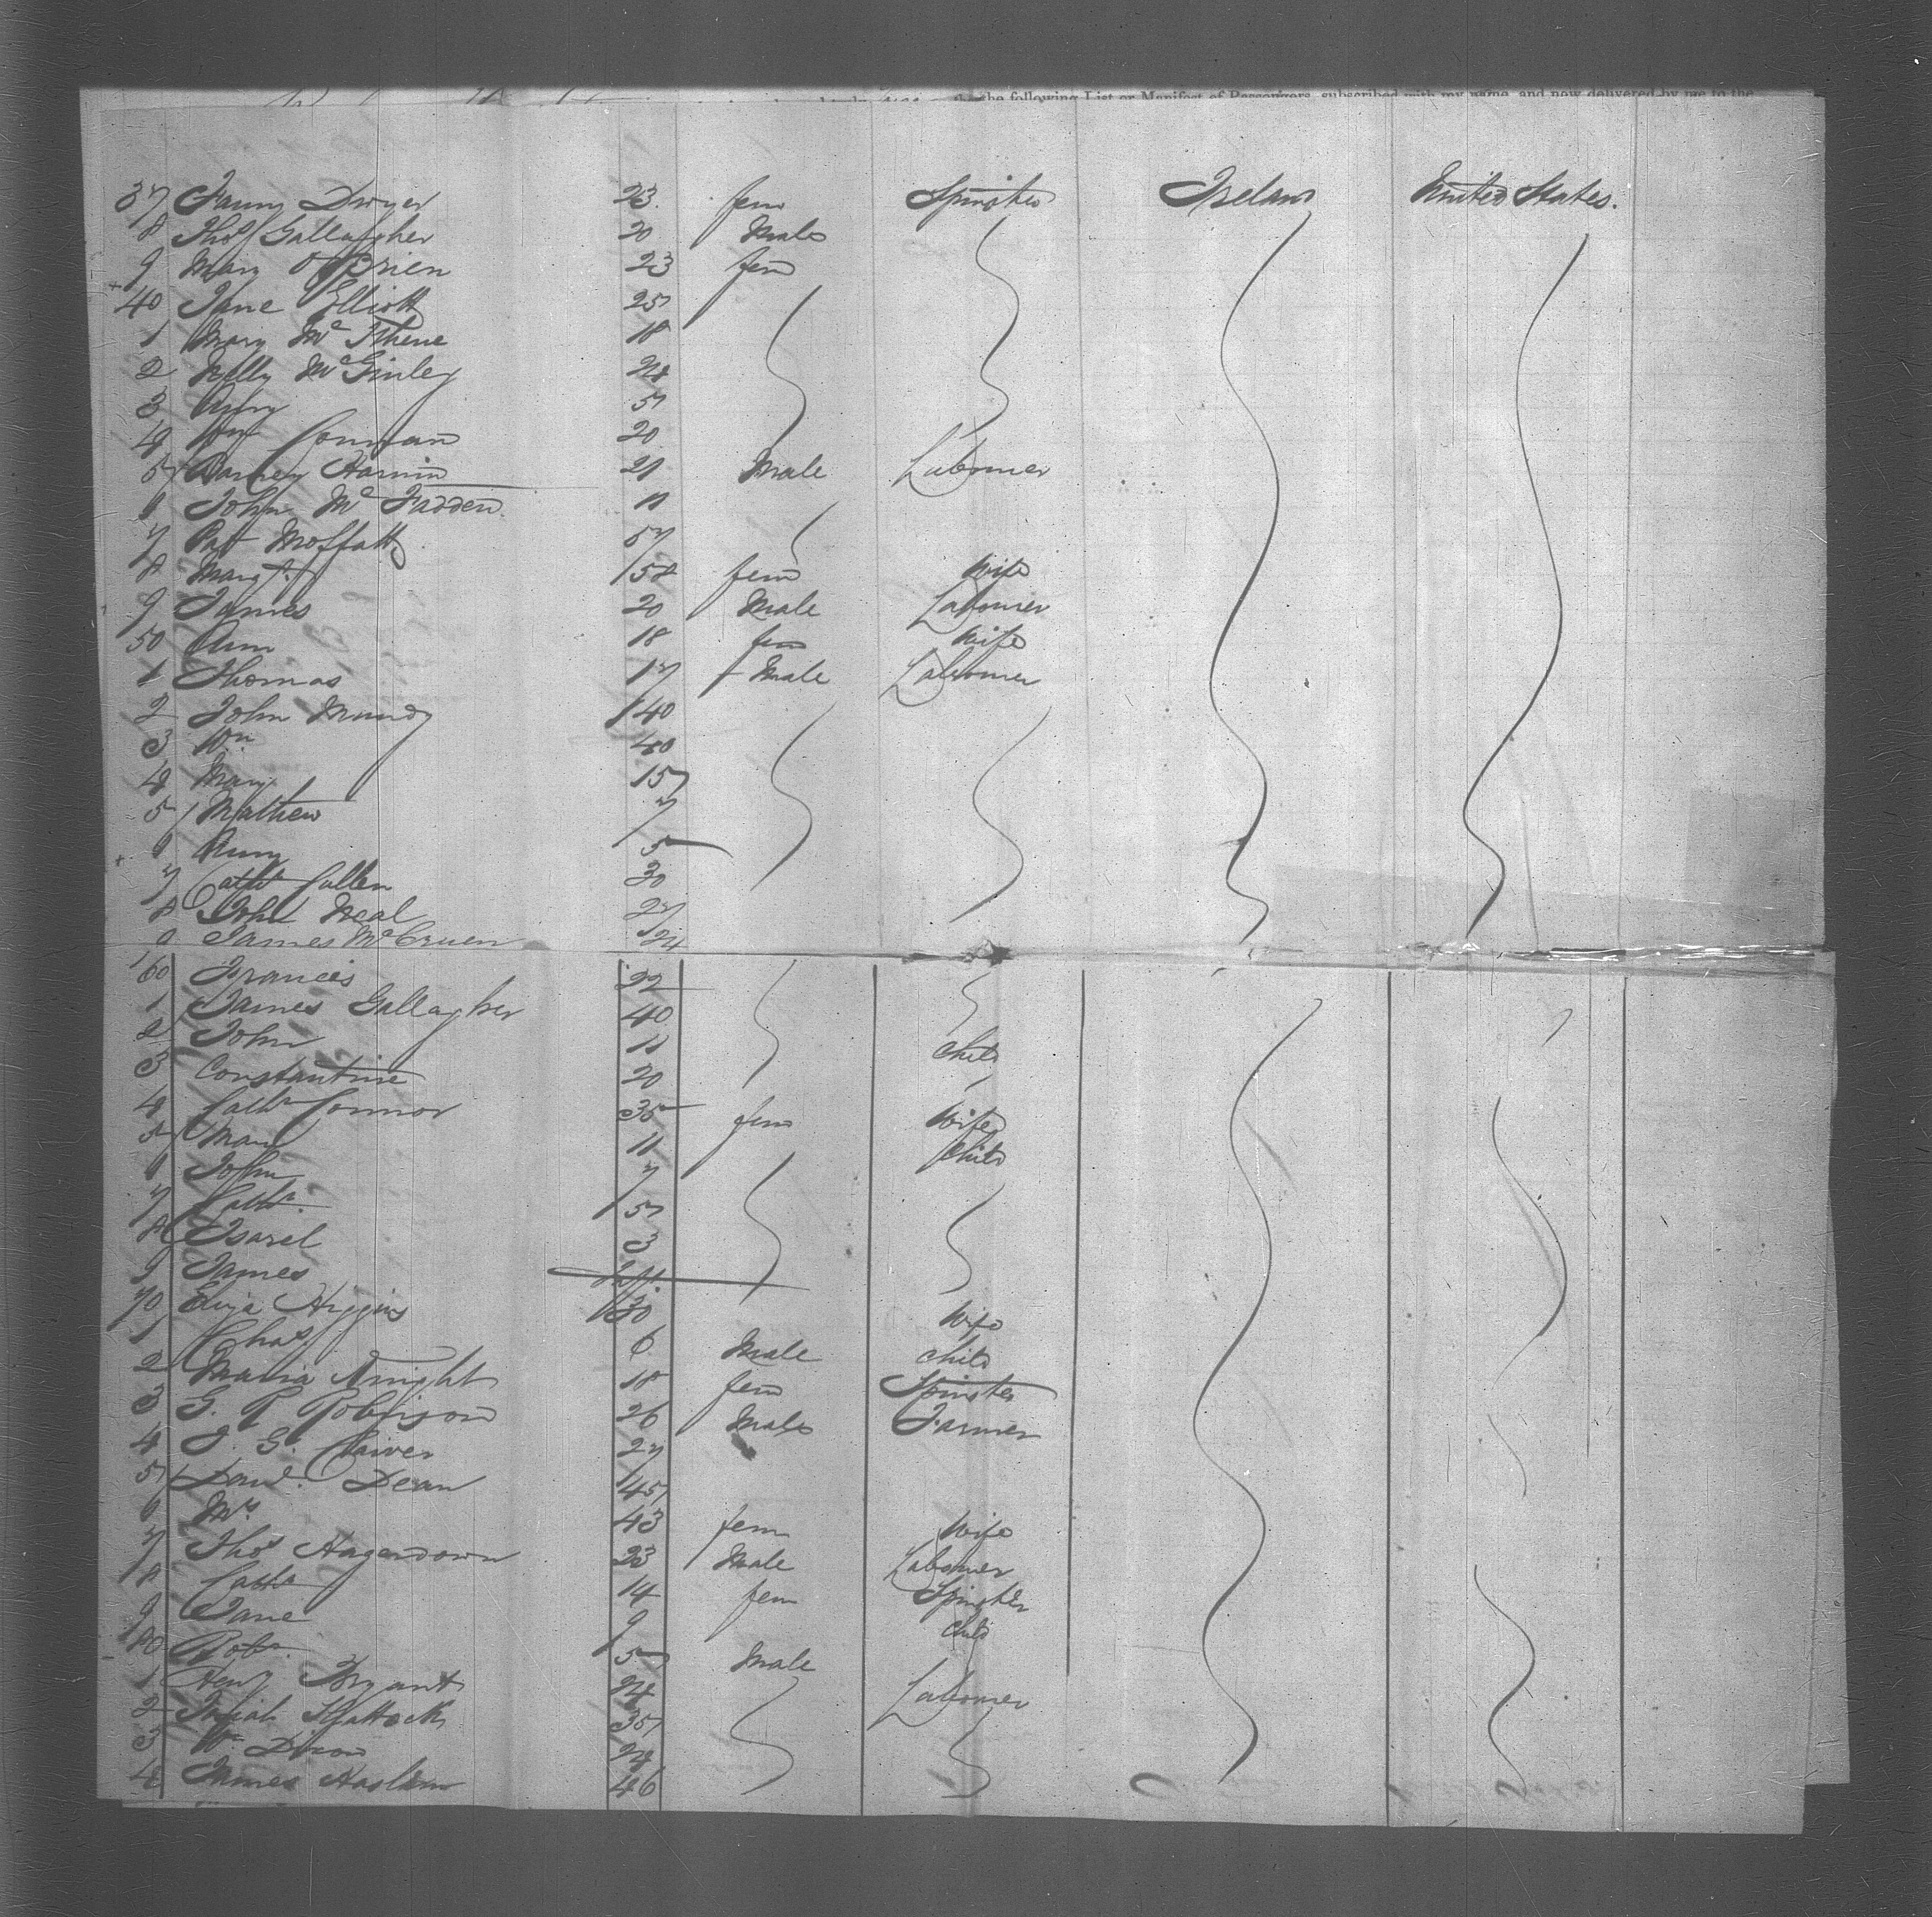 the following List or Manifest of Passengers, subscribed with my name, and now delivered by me to the
37 Fanny Dwyer 23 fem Spinster Ireland United States.
8 Thos Gallagher 20 Male
9 Mary O'Brien 23 fem
40 Jane Elliott 25
1 Mary Mc 18
2 Nelly McGinley 24
3 5
4 Wm 20
5 Barney 21 Male Labourer
6 John McFadden 11
7 Pat Moffatt 57
8 Margt 58 fem Wife
9 James 20 Male Labourer
50 Ann 18 fem Wife
1 Thomas 17 Male Labourer
2 John Mundy 40
3 Wm 40
4 Mary 15
5 Mathew 7
6 5
7 Cathe Cullen 30
8 John Neal 27
9 James McCruen 24
60 Francis 22
1 James Gallagher 40
2 John 11 Child
3 Constantine 20
4 Cath Connor 35 fem Wife
5 Mary 11 Child
6 John 7
7 Cath 5
8 Isarel 3
9 James Inft
70 Eliza Higgins 30 Wife
1 Chas 6 Male Child
2 Maria Knight 18 fem Spinster
3 G. P Robinson 26 Male Farmer
4 J. G. 27
5 Dean 45
6 Mrs 43 fem Wife
7 Thos Hagerdown 23 Male Labourer
8 Cath 14 fem Spinster
9 Jane 9 Child
80 Robt 5 Male
1 Heny Bryant 24 Labourer
2 35
3 Wm Dixon 24
4 James Haslam 46